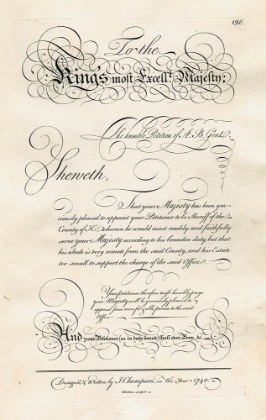 198
To the
King's most Excell.t Majesty;
The humble Petition of A. B. Gent.
Sheweth,
That your Majesty has been gra-
ciously pleased to appoint your Petitioner to be Sheriff of the
County of K. wherein he would most readily, and faithfully
serve your Majesty according to his bounden duty, but that
his abode is very remote from the said County, and his Estate
too small to support the charge of the said Office.
Your petitioner therefore most humbly prays
your Majesty will be graciously pleased to
appoint some more fit & able person to the said
Office.
And your Petitioner (as in duty bound) shall ever Pray, &c.
Design'd & Written by J. Champion, in the Year 1740.
sculpsit